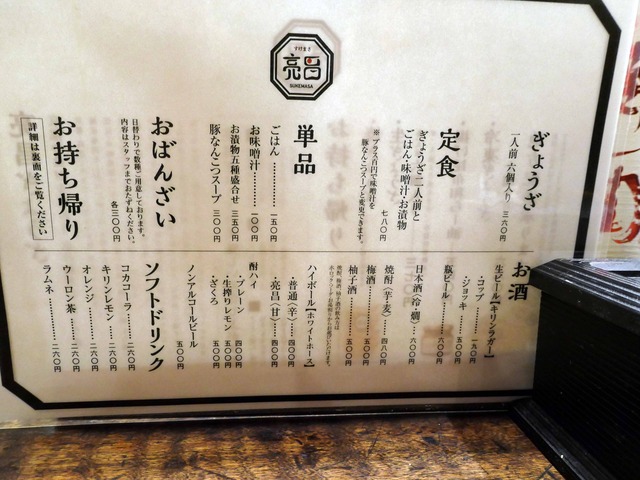 すけまさ
亮昌
SUKEMASA
ぎょうざ
一人前 六個入り 三六〇円
定食
ぎょうざ二人前と
ごはん・味噌汁・お漬物
七八〇円
※プラス百円で味噌汁を
豚なんこつスープと変更できます。
単品
ごはん…………一五〇円
お味噌汁…………一〇〇円
お漬物五種盛合せ 三五〇円
豚なんこつスープ 三〇〇円
おばんざい
日替わりで数種ご用意しております。
内容はスタッフまでおたずねください。
各三〇〇円
お持ち帰り
詳細は裏面をご覧ください
お酒
生ビール【キリンラガー】
・コップ…………一九〇円
・ジョッキ…………五〇〇円
瓶ビール…………六〇〇円
日本酒〈冷・燗〉…六〇〇円
焼酎〈芋・麦〉…四八〇円
梅酒…………五〇〇円
柚子酒…………五〇〇円
ハイボール【ホワイトホース】
・普通〈辛〉…四〇〇円
・亮昌〈甘〉…四〇〇円
酎ハイ
・プレーン 四〇〇円
・生搾りレモン 五〇〇円
・ざくろ 五〇〇円
ノンアルコールビール 五〇〇円
ソフトドリンク
コカコーラ…………二六〇円
キリンレモン…………二六〇円
オレンジ…………二六〇円
ウーロン茶…………二六〇円
ラムネ…………二六〇円